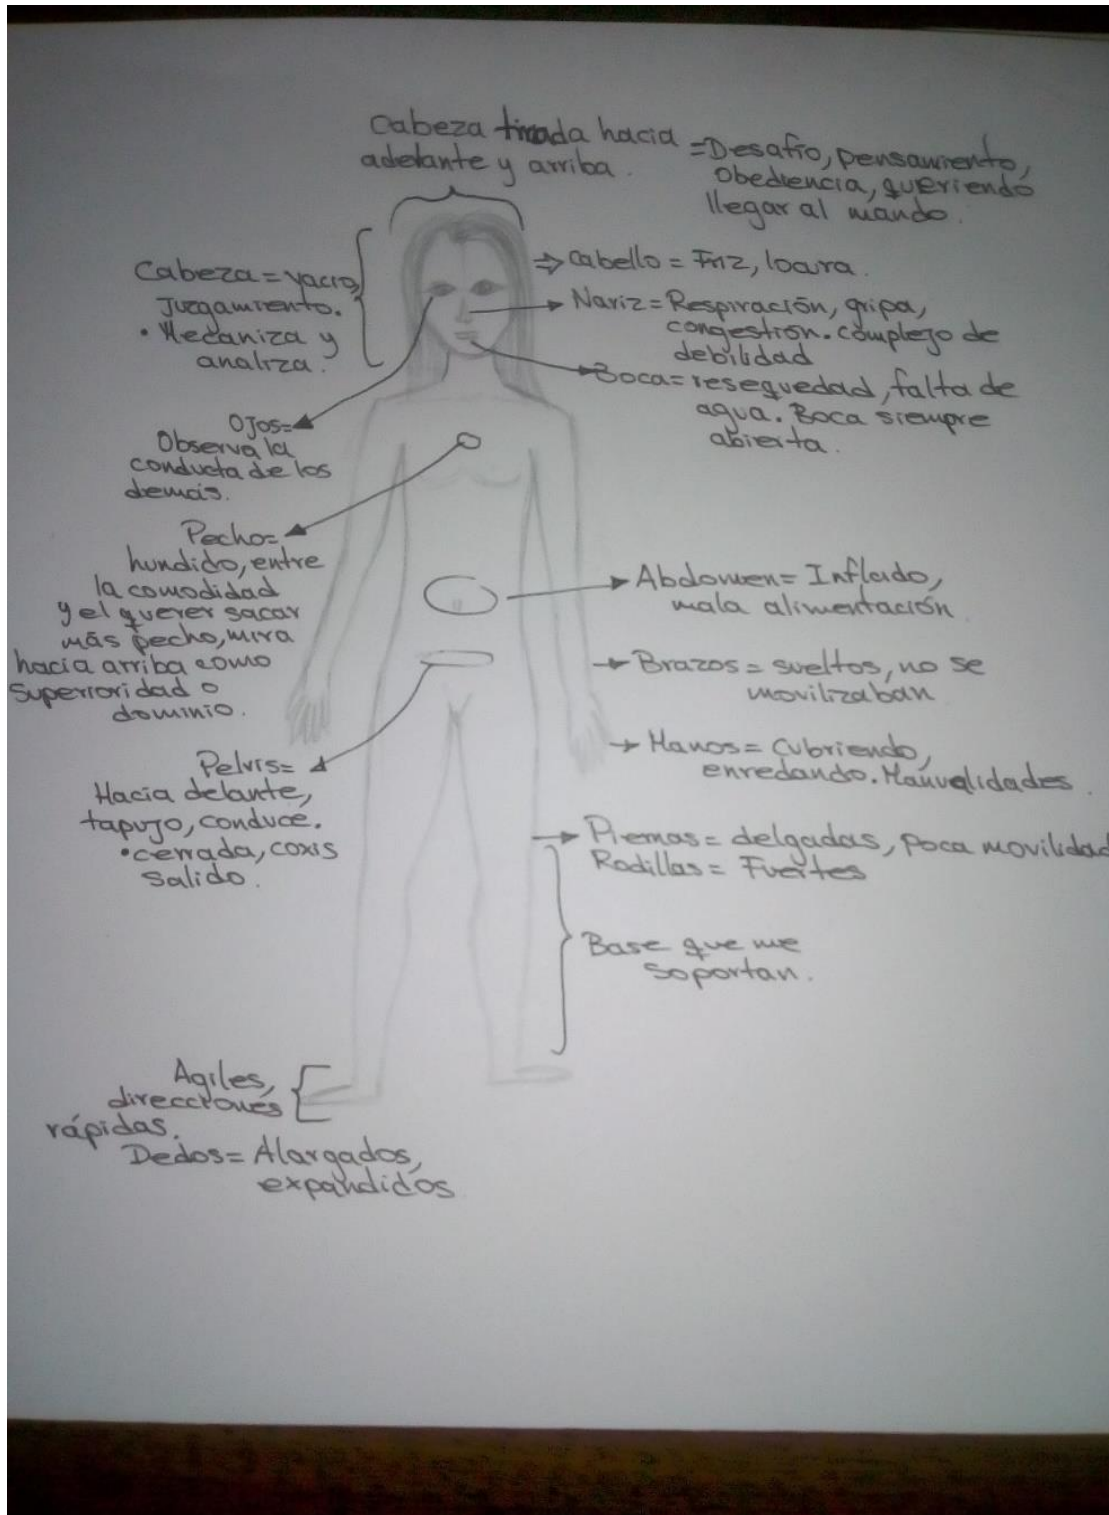 Cabeza tirada hacia
adelante y arriba.
=Desafío, pensamiento,
Obediencia, queriendo
llegar al mando.
Cabeza=vacío,
Juzgamiento.
• Mecaniza y
analiza.
⇒ Cabello = Friz, locura.
Nariz = Respiración, gripa,
congestión. complejo de
debilidad
Boca= resequedad, falta de
agua. Boca siempre
abierta.
Ojos=
Observa la
conducta de los
demás.
Pecho=
hundido, entre
la comodidad
y el querer sacar
más pecho, mira
hacia arriba como
Superioridad o
dominio.
Abdomen= Inflado,
mala alimentación
Brazos = sueltos, no se
movilizaban
Manos = Cubriendo,
enredando. Manualidades.
Pelvis=
Hacia delante,
tapujo, conduce.
• cerrada, coxis
salido.
Piernas = delgadas, poca movilidad
Rodillas = Fuertes
Base que me
soportan.
Agiles,
direcciones
rápidas.
Dedos= Alargados,
expandidos